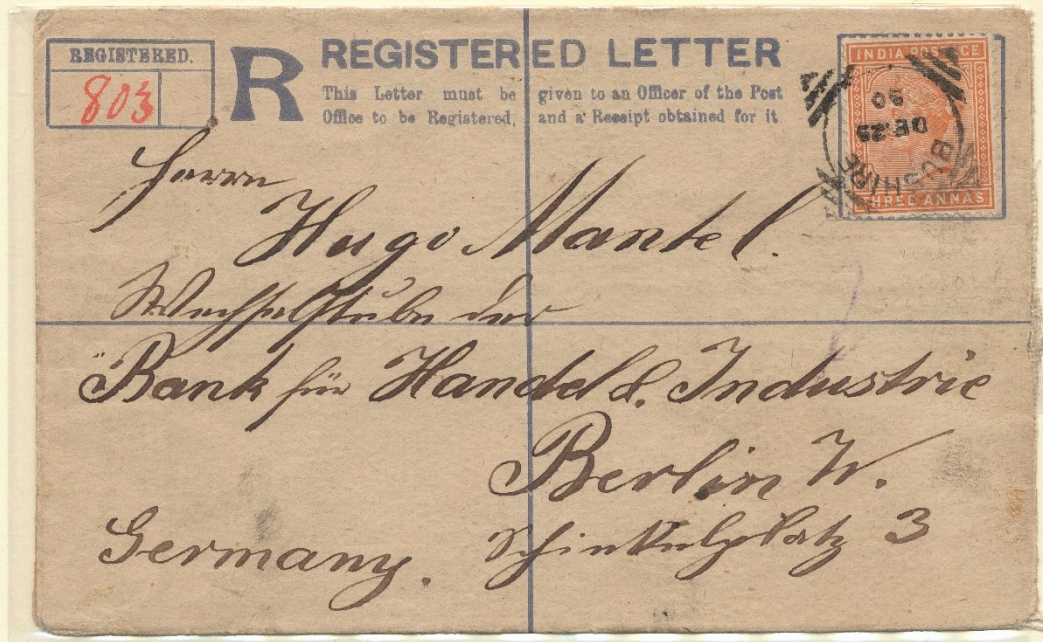 REGISTERED.
803
R
REGISTERED LETTER
This Letter must be given to an Officer of the Post
Office to be Registered, and a Receipt obtained for it
INDIA POSTAGE
THREE ANNAS
BUSHIRE
DE.23
90
Herrn
Hugo Mantel.
Wechselstube der
"Bank für Handel & Industrie
Berlin W.
Schinkelplatz 3
Germany.